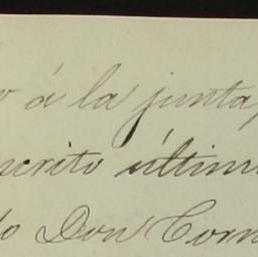 á la junta,
scrito últim
do Don Corn